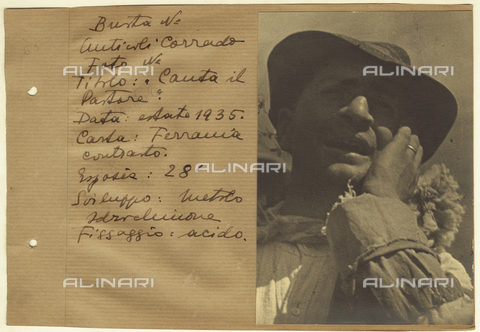 Busta Nº
Anticoli Corrado
Foto Nº
ALINARI ALINARI
Titolo: "Canta il
Pastore".
Data: estate 1935.
Carta: Ferrania
contrasto.
Esposiz: 28"
ALINARI ALINARI
Sviluppo: Metolo
Idrochinone
Fissaggio: acido.
ALINARI ALINARI